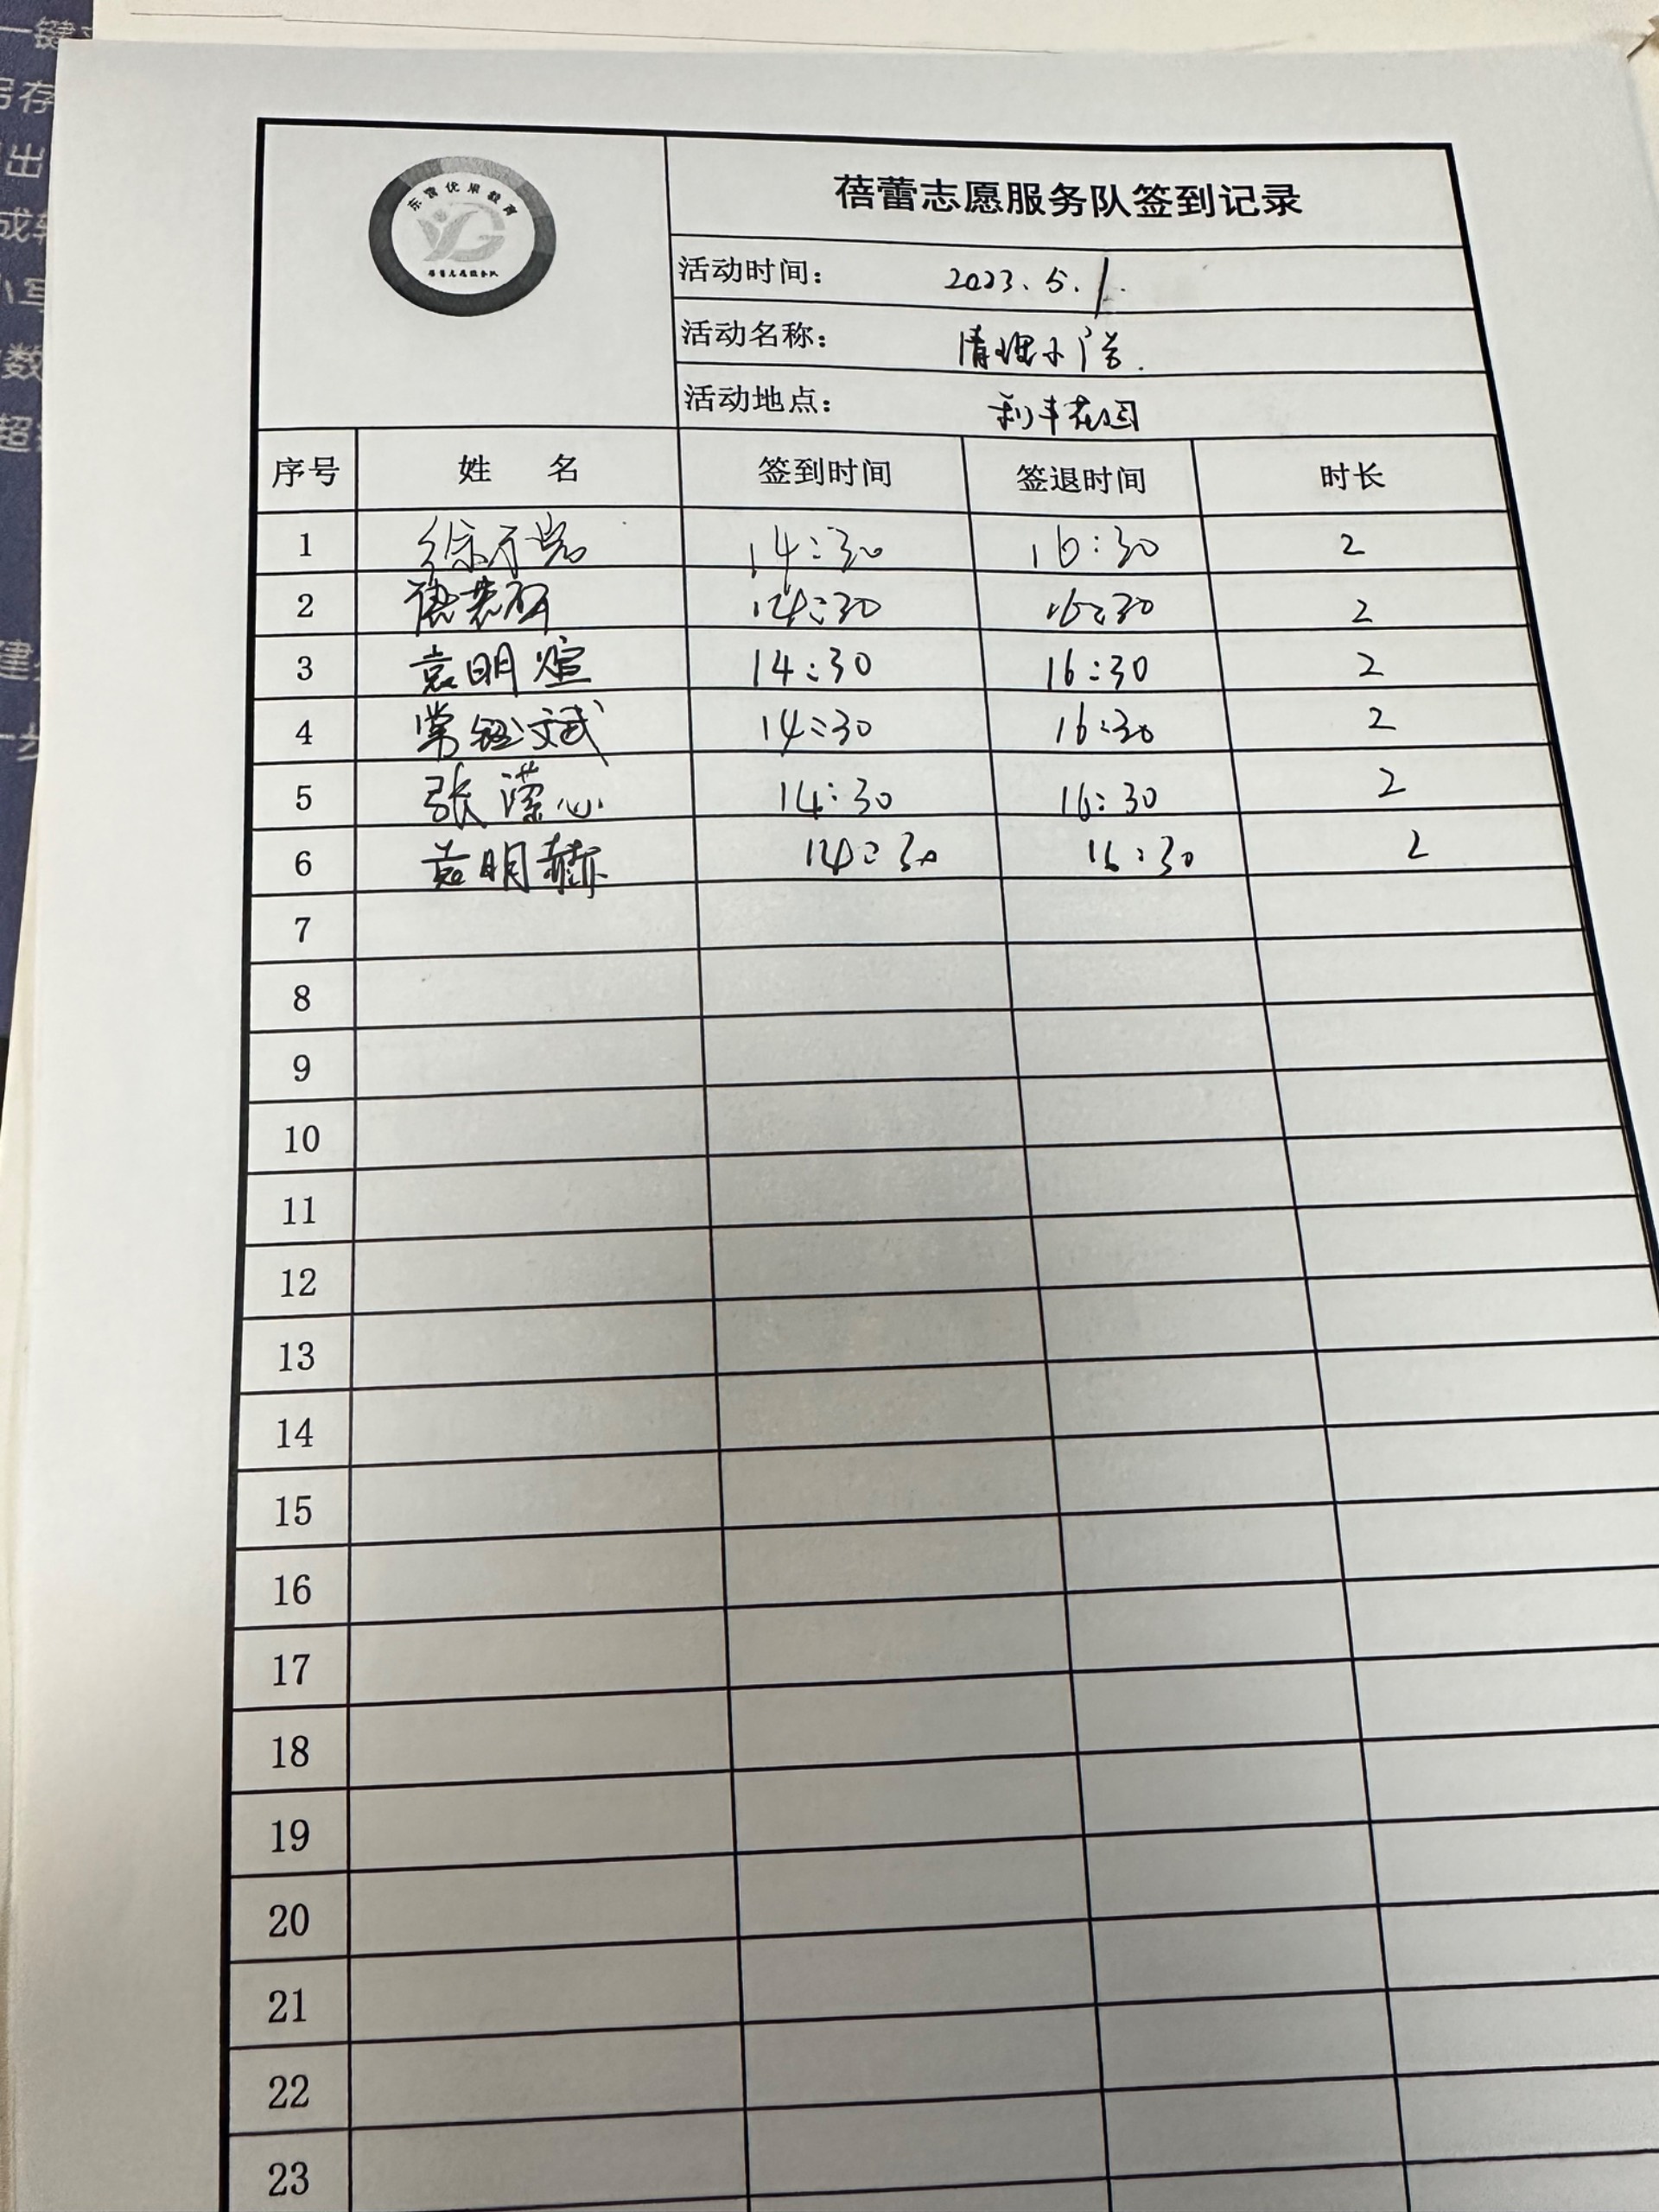 一键
另存
出
成转
小写
数
超
建
一步
东莞优果教育
蓓蕾志愿服务队
蓓蕾志愿服务队签到记录
活动时间： 2023.5.1
活动名称： 清理小广告.
活动地点： 利丰花园
序号 姓 名 签到时间 签退时间 时长
1 徐 14:30 16:30 2
2 14:30 16:30 2
3 袁明煊 14:30 16:30 2
4 常 斌 14:30 16:30 2
5 张滢心 14:30 16:30 2
6 袁明赫 14:30 16:30 2
7
8
9
10
11
12
13
14
15
16
17
18
19
20
21
22
23